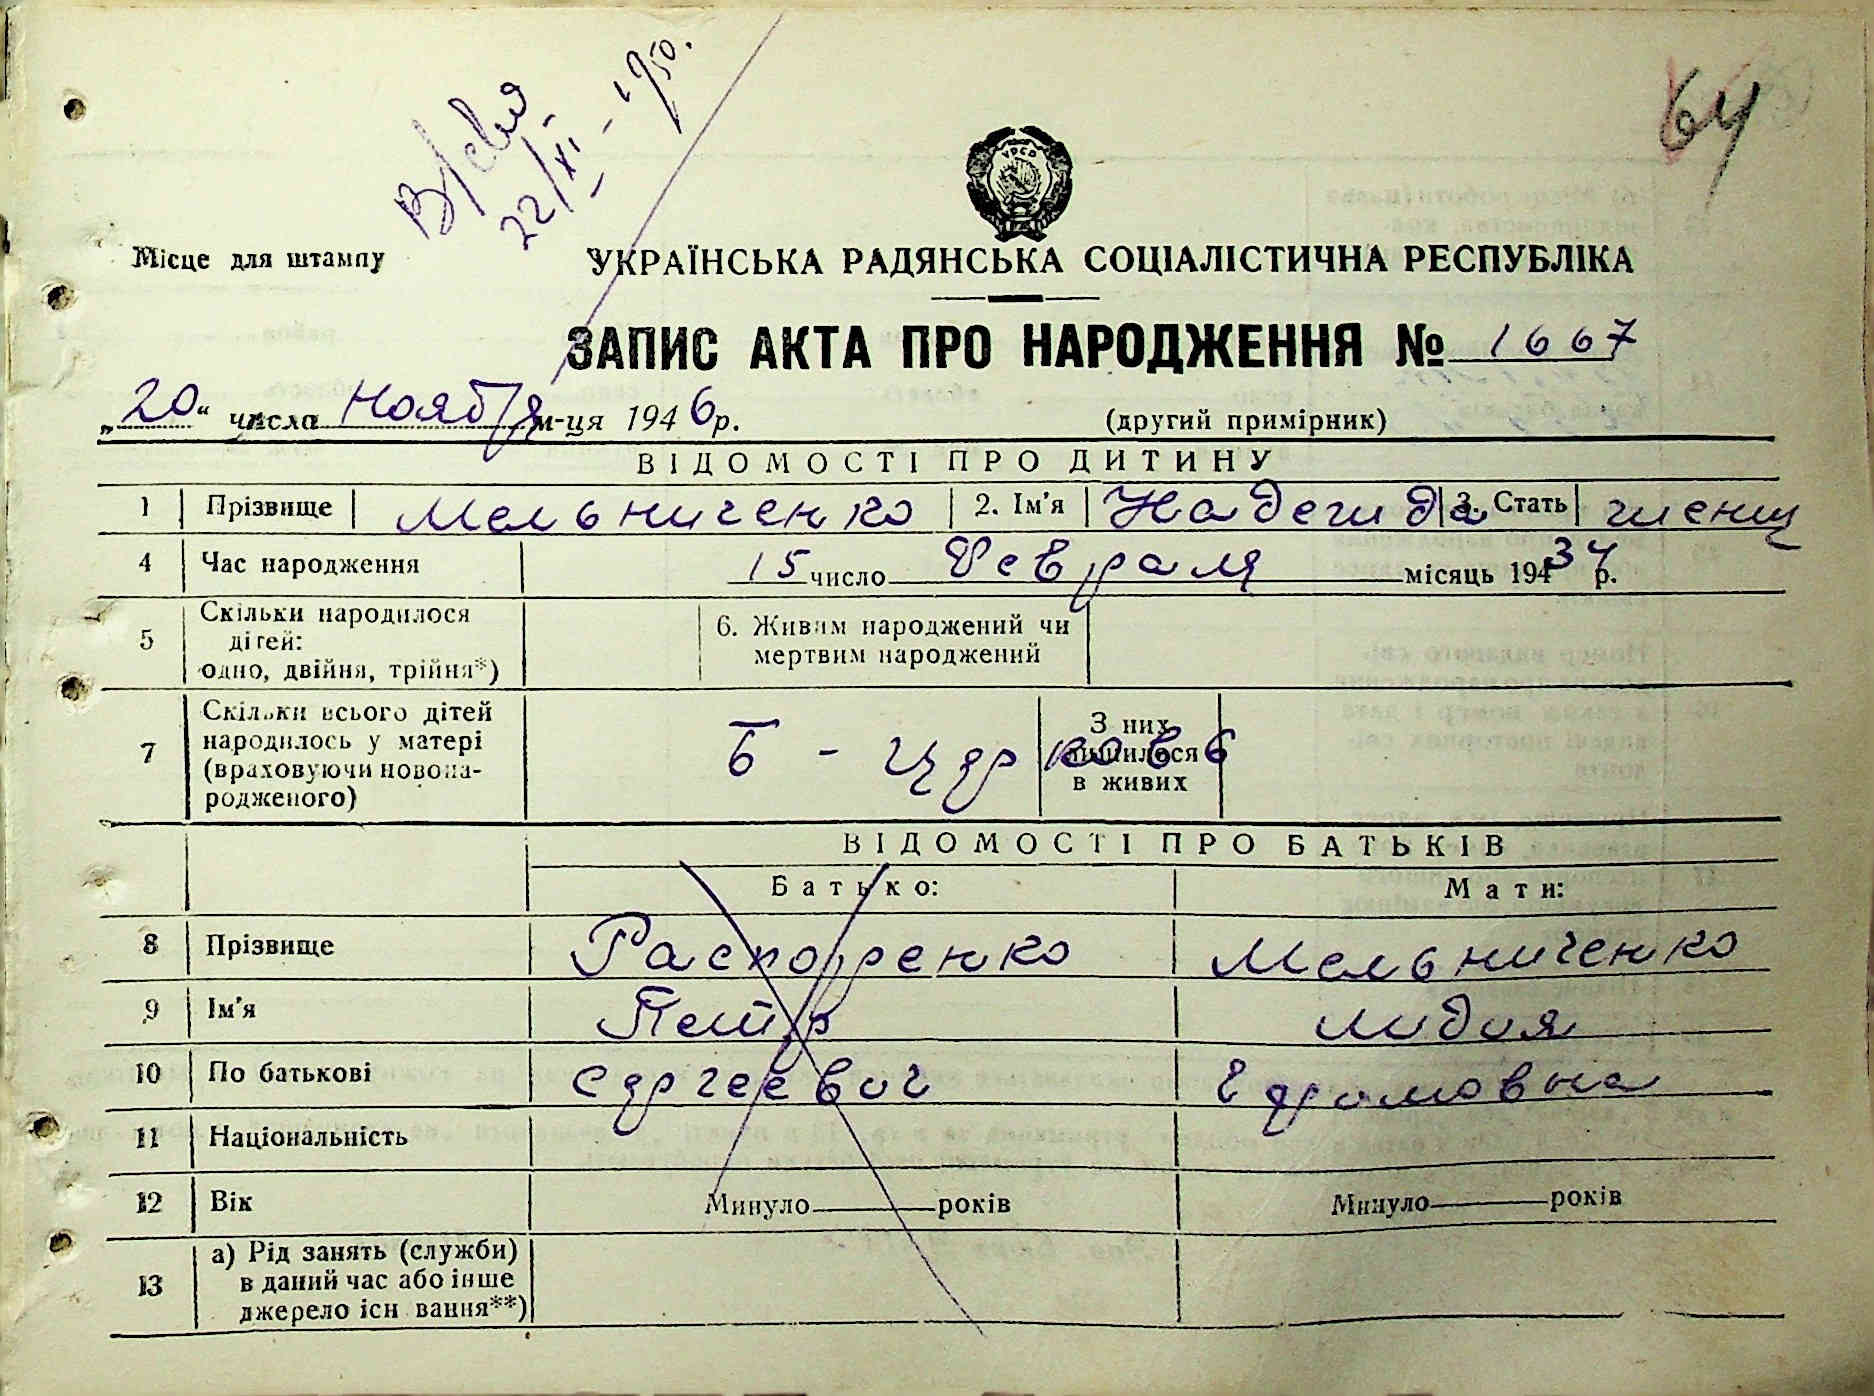 В/свид
22/XI - 1950.
64
УРСР
Місце для штампу
УКРАЇНСЬКА РАДЯНСЬКА СОЦІАЛІСТИЧНА РЕСПУБЛІКА
ЗАПИС АКТА ПРО НАРОДЖЕННЯ № 1667
„20“ числа Ноября м-ця 1946 р. (другий примірник)
ВІДОМОСТІ ПРО ДИТИНУ
1 Прізвище Мельниченко 2. Ім'я Надежда 3. Стать женщ
4 Час народження 15 число Февраля місяць 194 34 р.
5 Скільки народилося дітей: одно, двійня, трійня*) 6. Живим народжений чи мертвим народжений
7 Скільки всього дітей народилось у матері (враховуючи новонародженого) Б - Церковь З них лишилося в живих
ВІДОМОСТІ ПРО БАТЬКІВ
Батько: Мати:
8 Прізвище Мельниченко
9 Ім'я Петр Лидия
10 По батькові Сергеевич
11 Національність
12 Вік Минуло років Минуло років
13 а) Рід занять (служби) в даний час або інше джерело існування**)